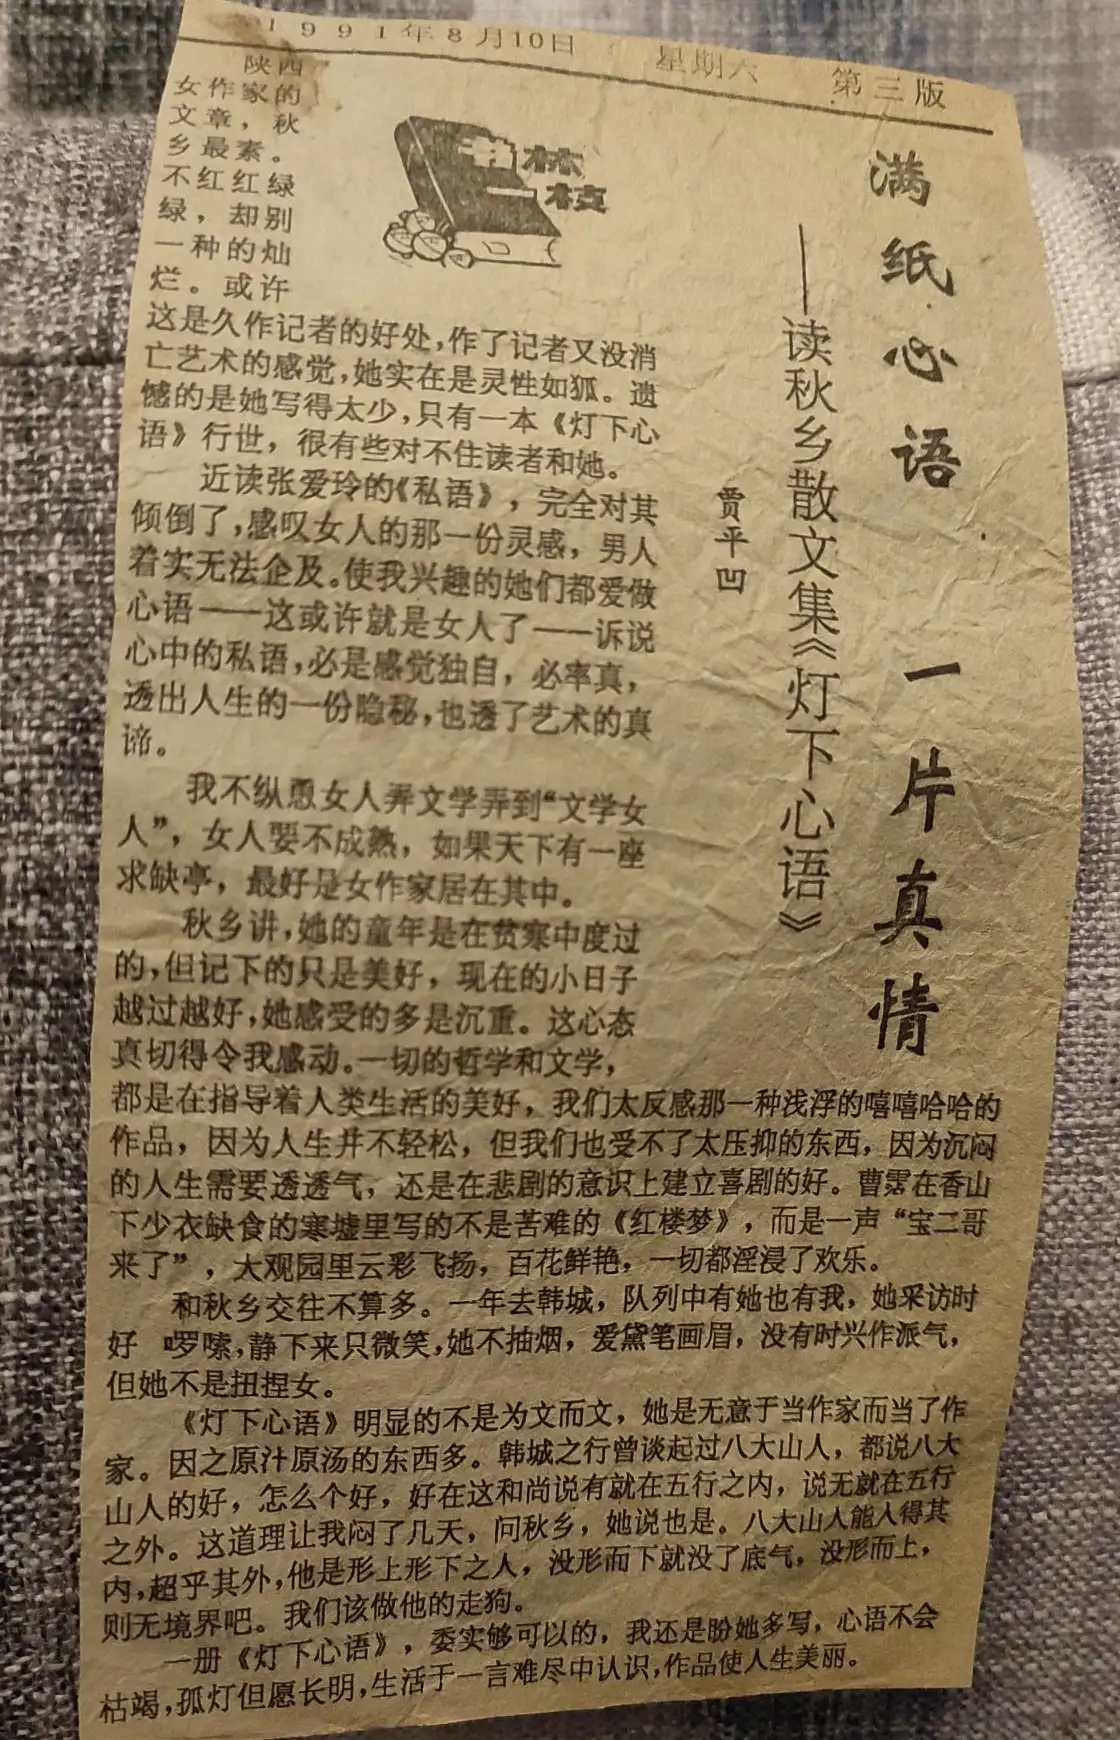 1991年8月10日 星期六 第三版
书林一枝
满纸心语 一片真情
——读秋乡散文集《灯下心语》
贾平凹
陕西
女作家的
文章，秋
乡最素。
不红红绿
绿，却别
一种的灿
烂。或许
这是久作记者的好处，作了记者又没消
亡艺术的感觉，她实在是灵性如狐。遗
憾的是她写得太少，只有一本《灯下心
语》行世，很有些对不住读者和她。
近读张爱玲的《私语》，完全对其
倾倒了，感叹女人的那一份灵感，男人
着实无法企及。使我兴趣的她们都爱做
心语——这或许就是女人了——诉说
心中的私语，必是感觉独自，必率真，
透出人生的一份隐秘，也透了艺术的真
谛。
我不纵恿女人弄文学弄到“文学女
人”，女人要不成熟，如果天下有一座
求缺亭，最好是女作家居在其中。
秋乡讲，她的童年是在贫寒中度过
的，但记下的只是美好，现在的小日子
越过越好，她感受的多是沉重。这心态
真切得令我感动。一切的哲学和文学，
都是在指导着人类生活的美好，我们太反感那一种浅浮的嘻嘻哈哈的
作品，因为人生并不轻松，但我们也受不了太压抑的东西，因为沉闷
的人生需要透透气，还是在悲剧的意识上建立喜剧的好。曹霑在香山
下少衣缺食的寒墟里写的不是苦难的《红楼梦》，而是一声“宝二哥
来了”，大观园里云彩飞扬，百花鲜艳，一切都淫浸了欢乐。
和秋乡交往不算多。一年去韩城，队列中有她也有我，她采访时
好 啰嗦，静下来只微笑，她不抽烟，爱黛笔画眉，没有时兴作派气，
但她不是扭捏女。
《灯下心语》明显的不是为文而文，她是无意于当作家而当了作
家。因之原汁原汤的东西多。韩城之行曾谈起过八大山人，都说八大
山人的好，怎么个好，好在这和尚说有就在五行之内，说无就在五行
之外。这道理让我闷了几天，问秋乡，她说也是。八大山人能入得其
内，超乎其外，他是形上形下之人，没形而下就没了底气，没形而上，
则无境界吧。我们该做他的走狗。
一册《灯下心语》，委实够可以的，我还是盼她多写，心语不会
枯竭，孤灯但愿长明，生活于一言难尽中认识，作品使人生美丽。